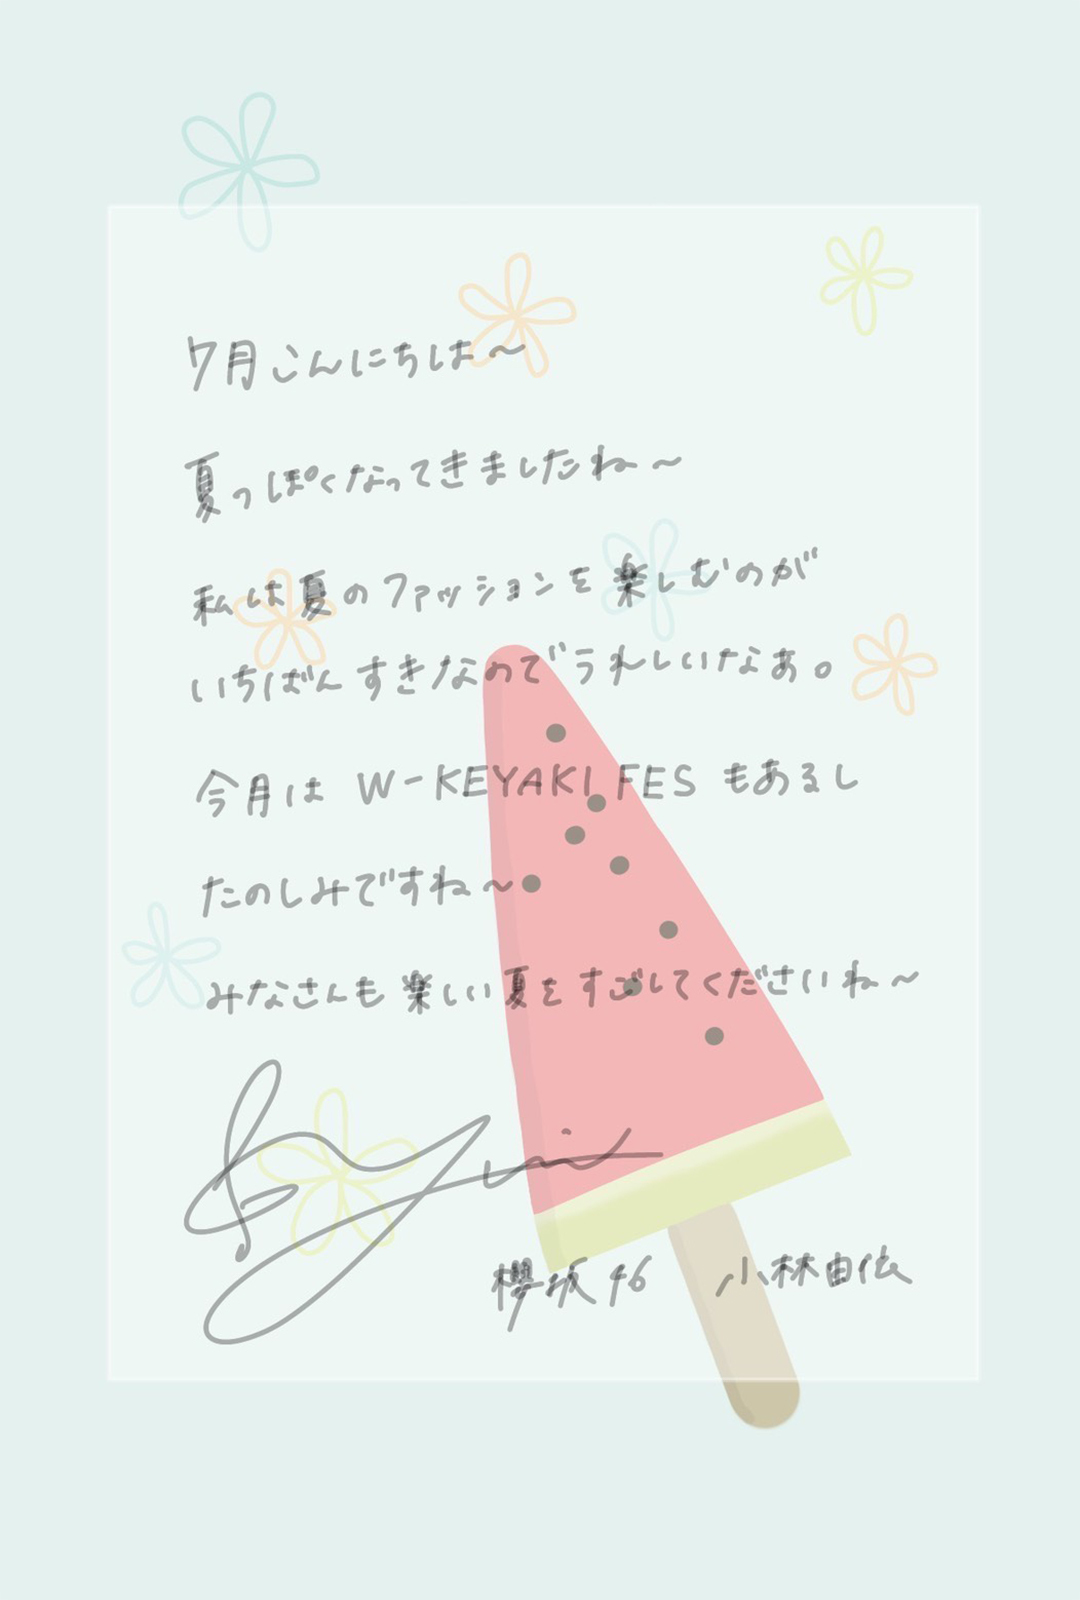 7月こんにちは〜
夏っぽくなってきましたね〜
私は夏のファッションを楽しむのが
いちばんすきなのでうれしいなあ。
今月は W-KEYAKI FES もあるし
たのしみですね〜
みなさんも楽しい夏をすごしてくださいね〜
櫻坂46 小林由依